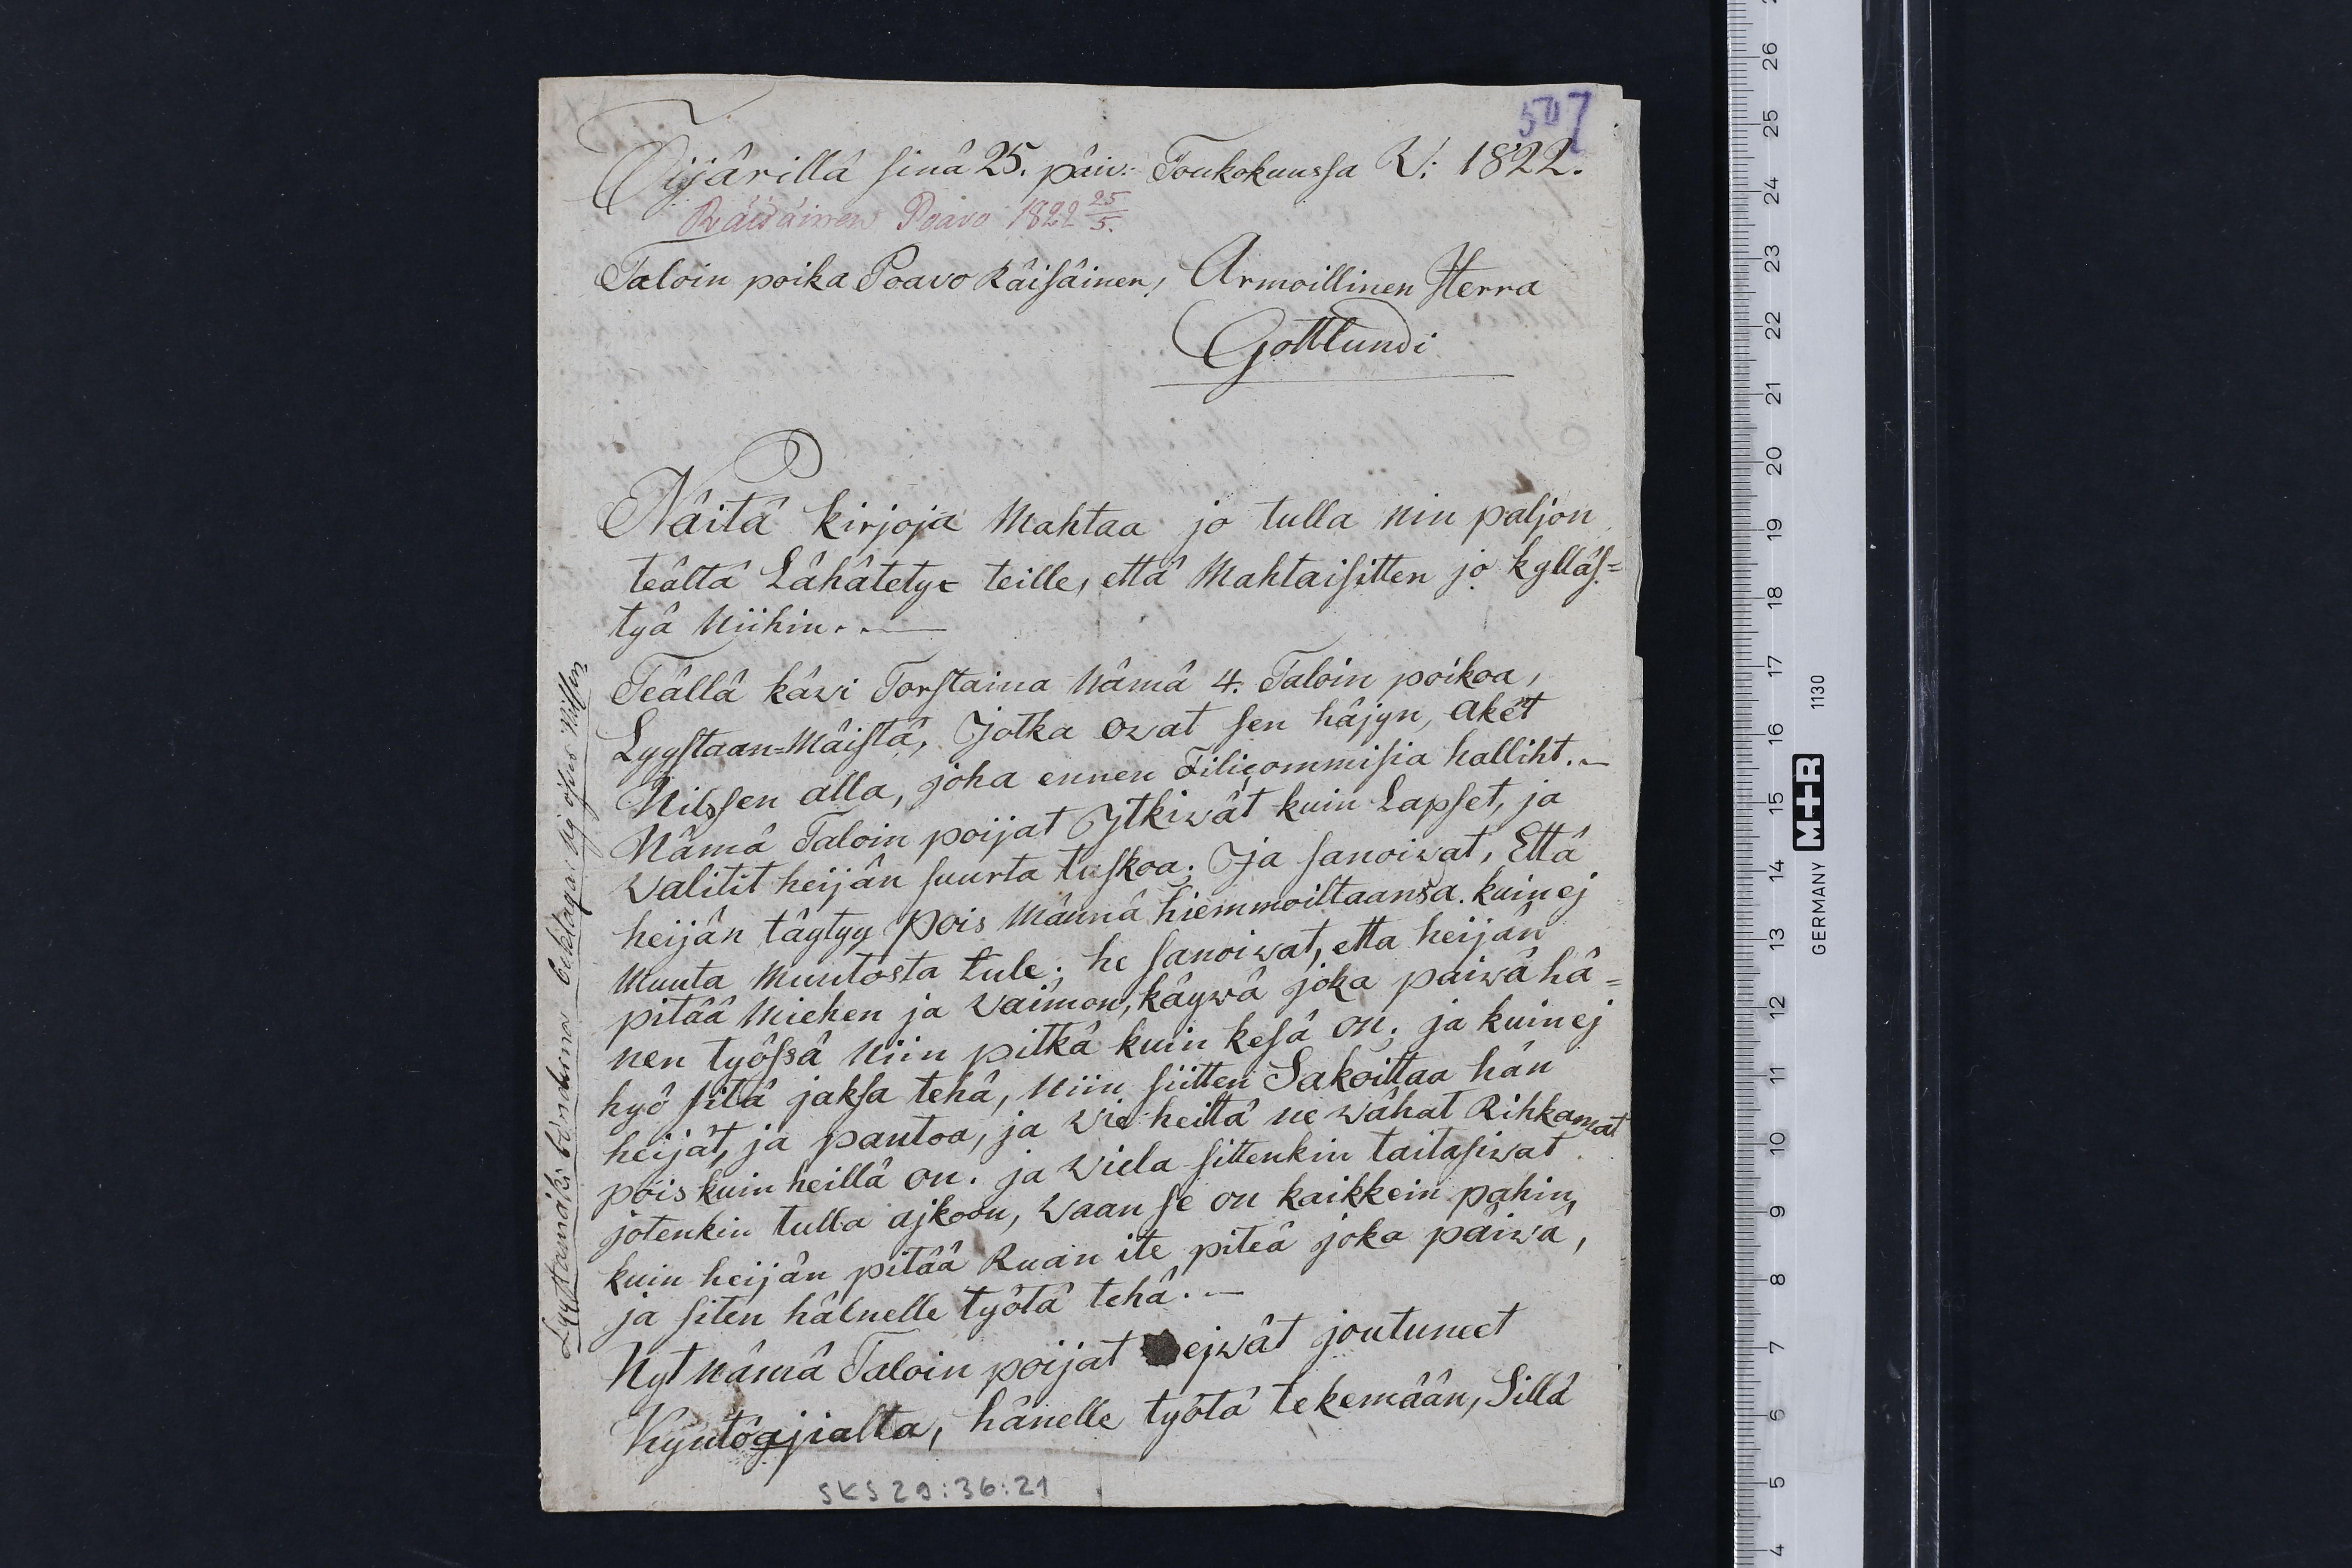 507
Öijärillä sinä 25. päiv: Toukokuussa V: 1822.
Räisäinen Poavo 1822 25/5.
Taloin poika Poavo Räisäinen, Armoillinen Herra
Gottlundi
Näitä kirjoja Mahtaa jo tulla nin paljon
teältä Lähätetyt teille, että Mahtaisitten jo kylläs=
tyä Niihin. —
Teällä käwi Torstaina Nämä 4. Taloin poikoa,
Lyystaan=Mäistä, Jotka owat sen häjyn, aket
Nilssen alla, joha ennen Filicommisia halliht. —
Nämä Taloin poijat Ytkiwät kuin Lapset, ja
Valitit heijän suurta tuskoa; Ja sanoiwat, Että
heijän täytyy Pois Männä hiemmoiltaansa. kuin ej
Muuta Muutosta tule; he sanoiwat, etta heijän
pitää Miehen ja Vaimon, käywä joka päiwä hä=
nen työssä Niin pitkä kuin kesä on; ja kuin ej
hyö sitä jaksa tehä, Niin siitten Sakoittaa hän
heijät, ja pantoa, ja Vie heiltä ne wähat Rihkamat
pois kuin heillä on. ja Viela sittenkin taitasiwat
jotenkin tulla ajkoon, Vaan se on kaikkein pahin,
kuin heijän pitää Ruan ite piteä joka päiwä,
ja siten hälnelle työtä tehä. —
Nyt Nämä Taloin poijat ejwät joutuneet
Kyntöajialta, hänelle työtä tekemään, Sillä
Lyystamäki bönderna beklaga sig öfver Nilssen
SKS 29:36:21
26
25
24
23
22
21
20
19
18
17
16
15
14
13
12
11
10
9
8
7
6
5
4
GERMANY M+R 1130